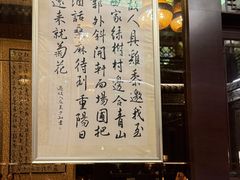 故人具雞黍邀我至
田家綠樹村邊合青山
郭外斜開軒面場圃把
酒話桑麻待到重陽日
還来就菊花